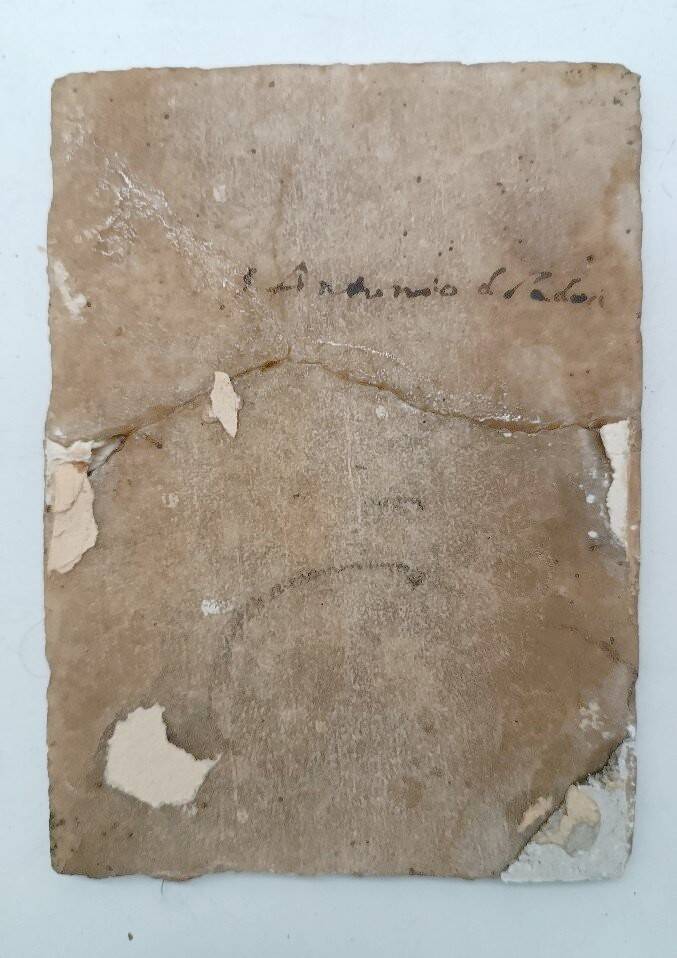 S Antonio d Padoa